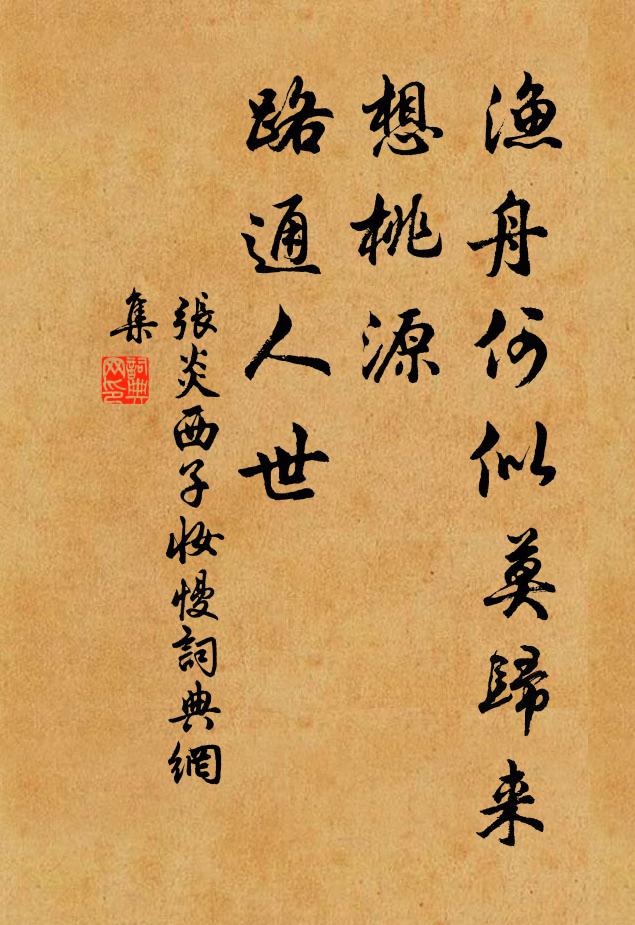 渔舟何似莫歸来
想桃源
路通人世
張炎西子妆慢詞典網
集
詞典
网印